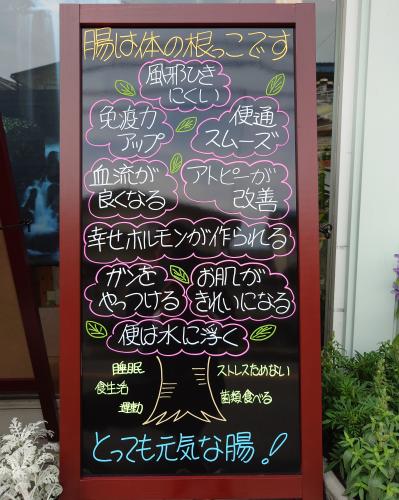 腸は体の根っこです
風邪ひき
にくい
免疫力
アップ
便通
スムーズ
血流が
良くなる
アトピーが
改善
幸せホルモンが作られる
ガンを
やっつける
お肌が
きれいになる
便は水に浮く
睡眠
食生活
運動
ストレスためない
菌類食べる
とっても元気な腸!